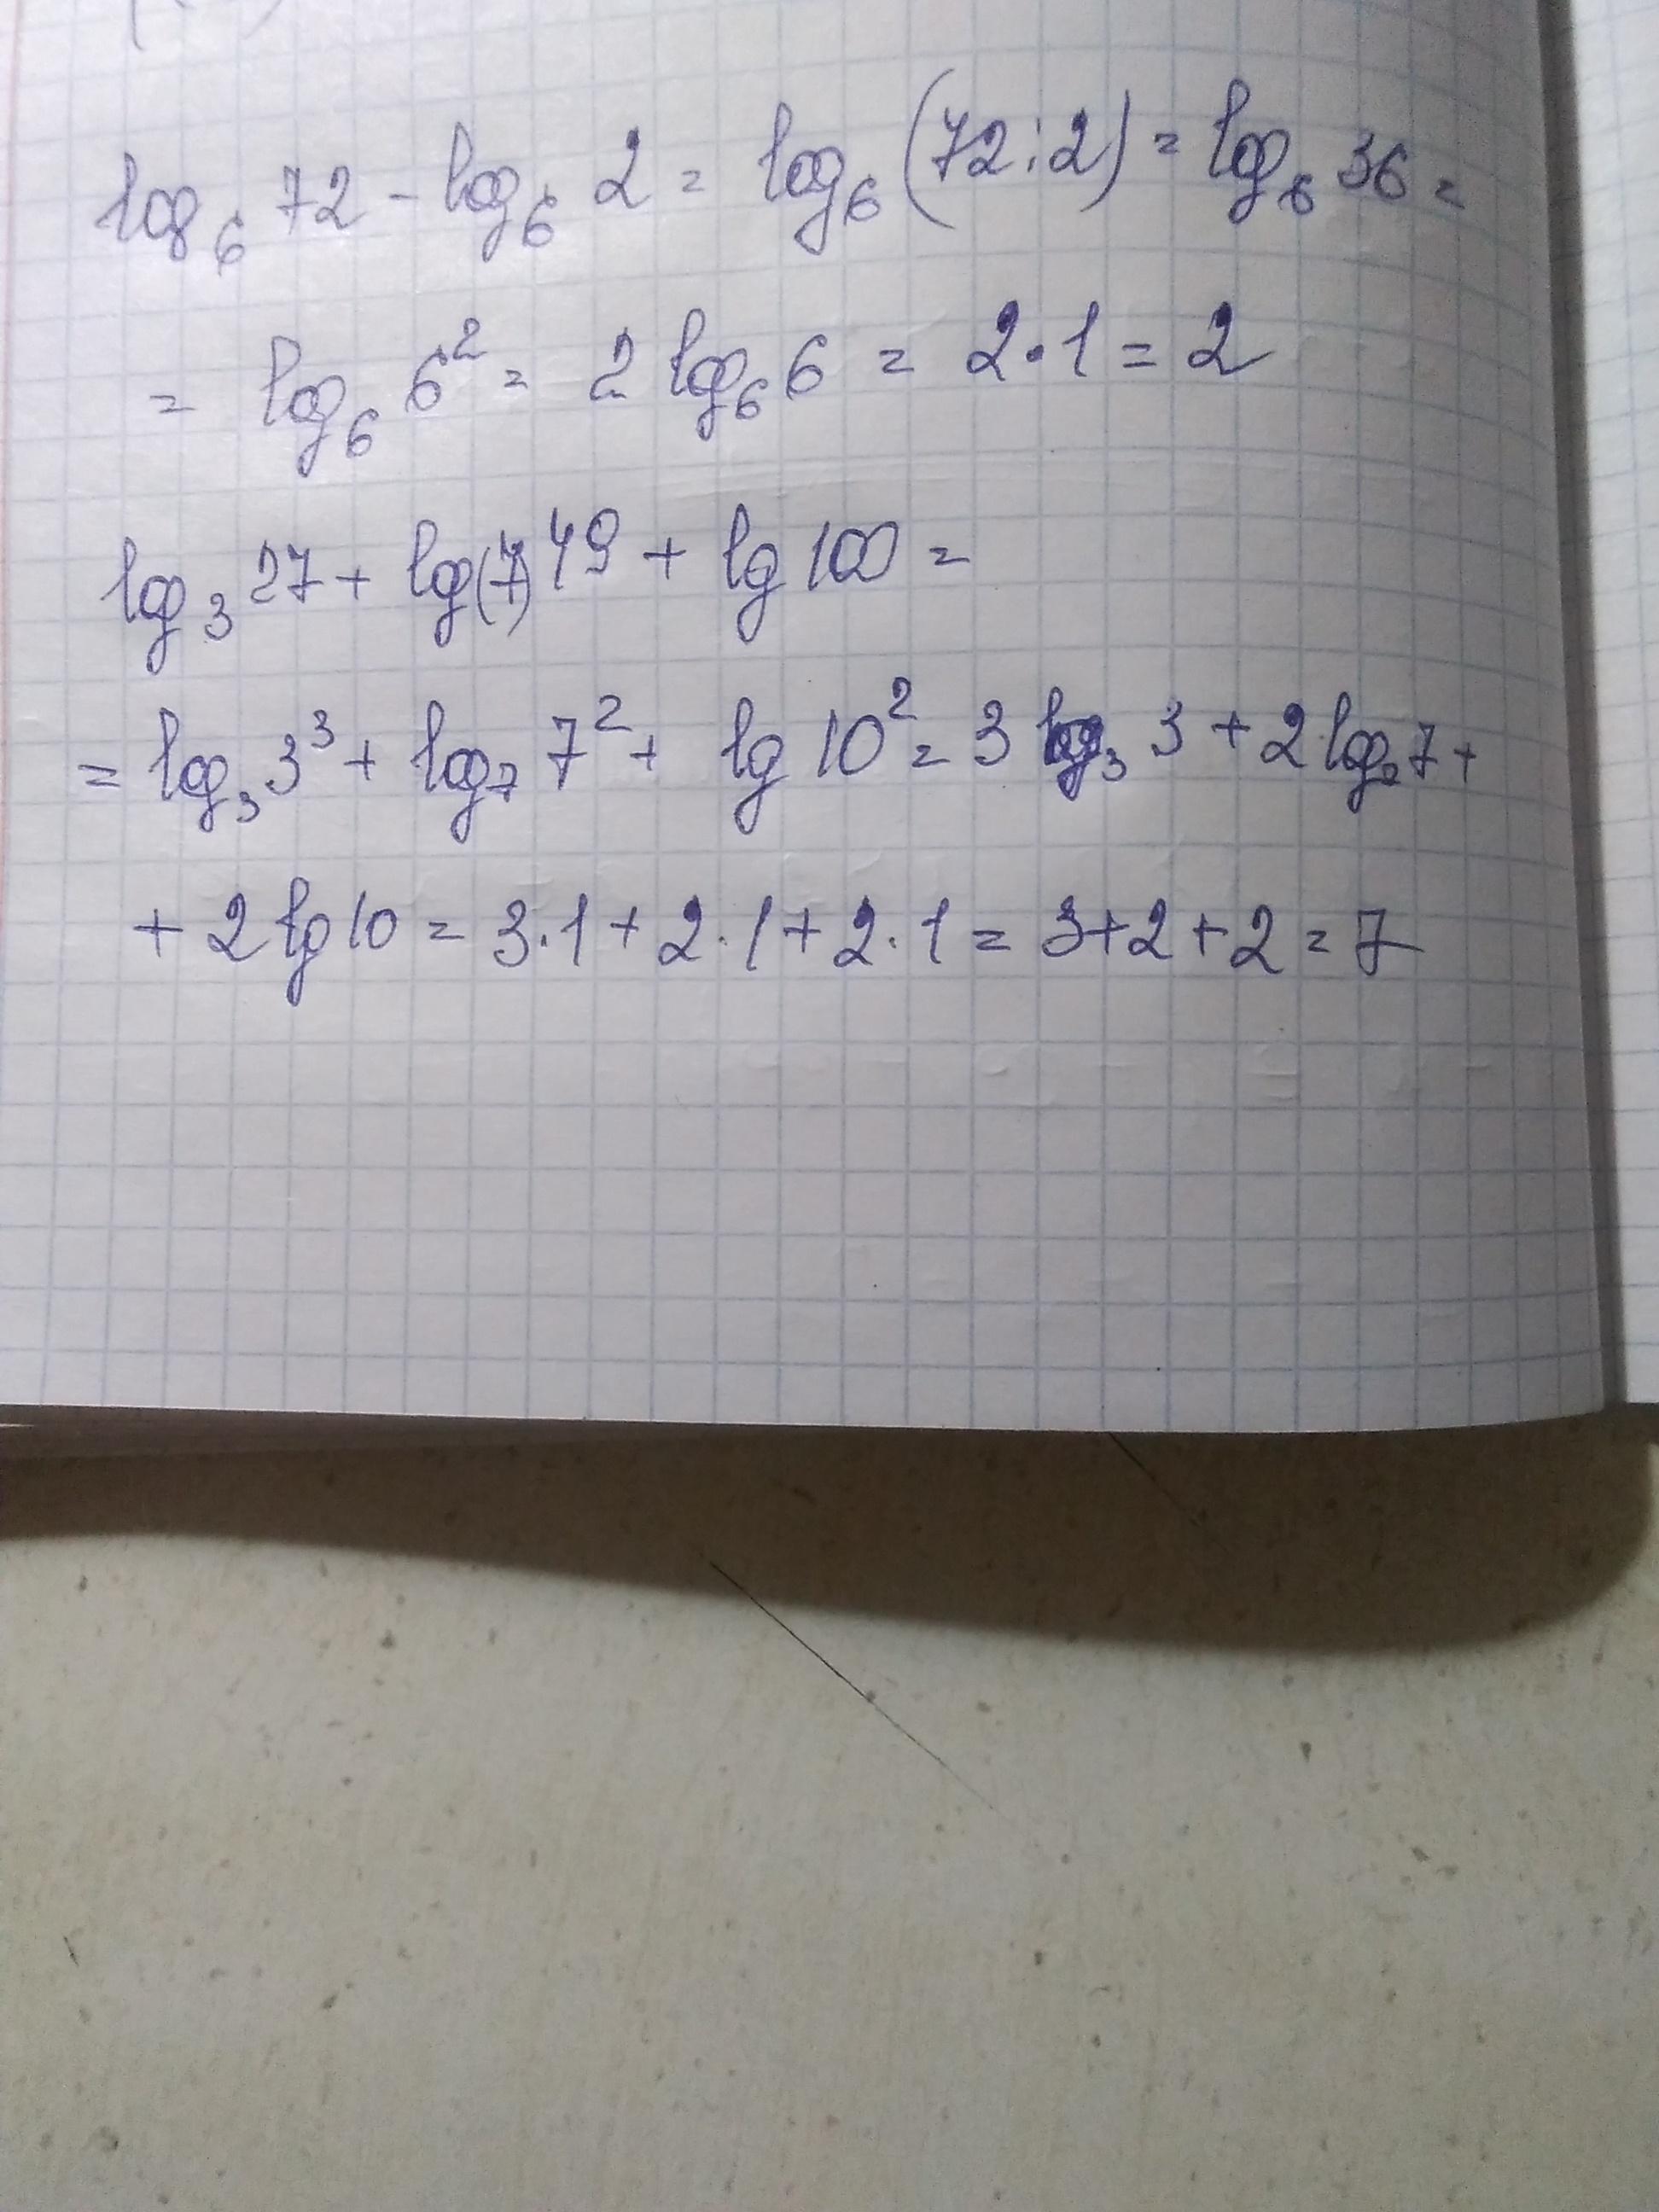 log₆ 72 - log₆ 2 = log₆ (72:2) = log₆ 36 =
= log₆ 6² = 2 log₆ 6 = 2·1 = 2
log₃ 27 + log(7) 49 + lg 100 =
= log₃ 3³ + log₇ 7² + lg 10² = 3 log₃ 3 + 2 log₇ 7 +
+ 2 lg 10 = 3·1 + 2·1 + 2·1 = 3+2+2 = 7